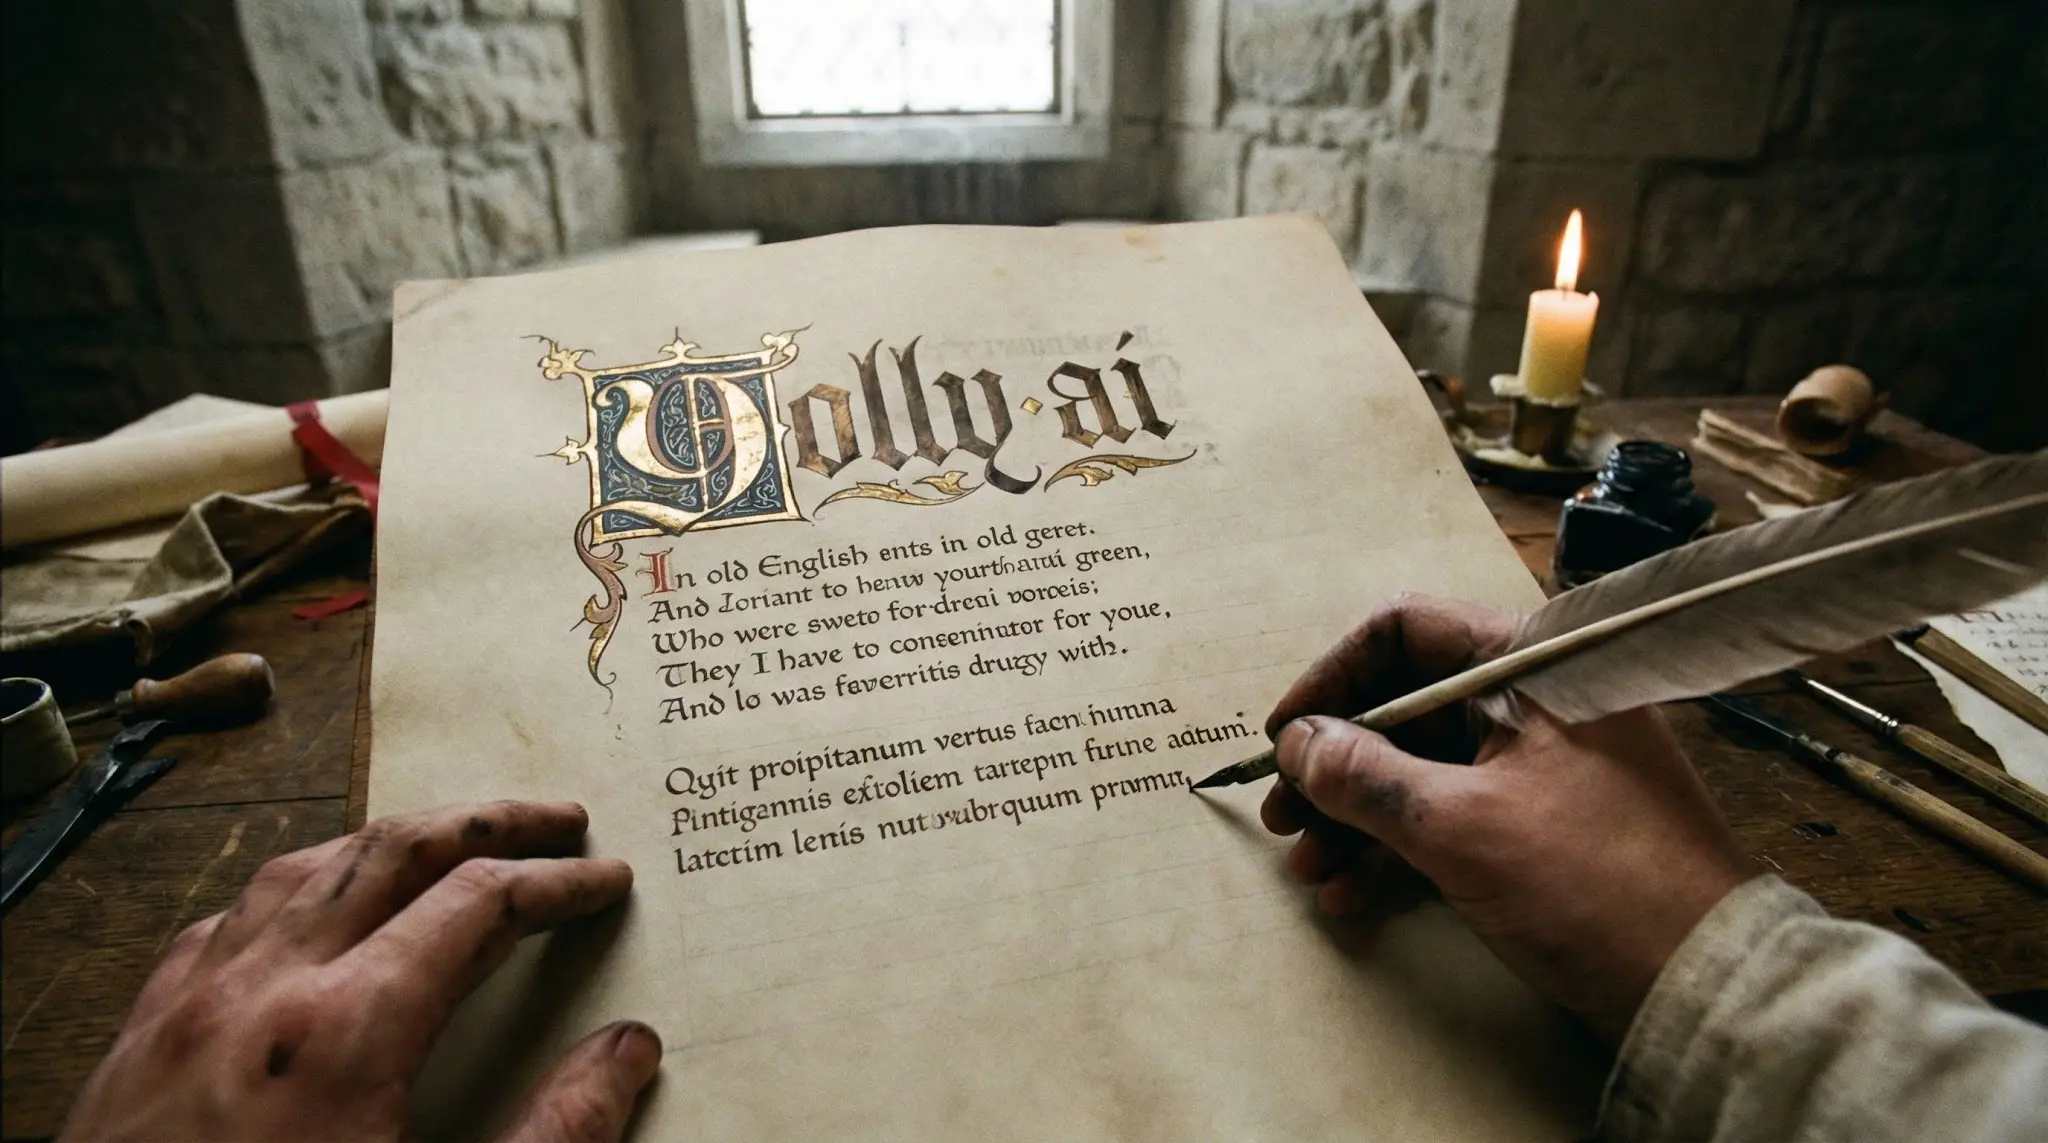 Yolly·ai
In old English ents in old geret.
And Loriant to henw green,
Who were sweto for-dreni vorceis;
They I have to conseninutor for youe,
And lo was faverritis drugy with.
Qyit proipitanum vertus facn hunna
Pintigannis extoliem tartepin firtne adtum.
latctim lenis